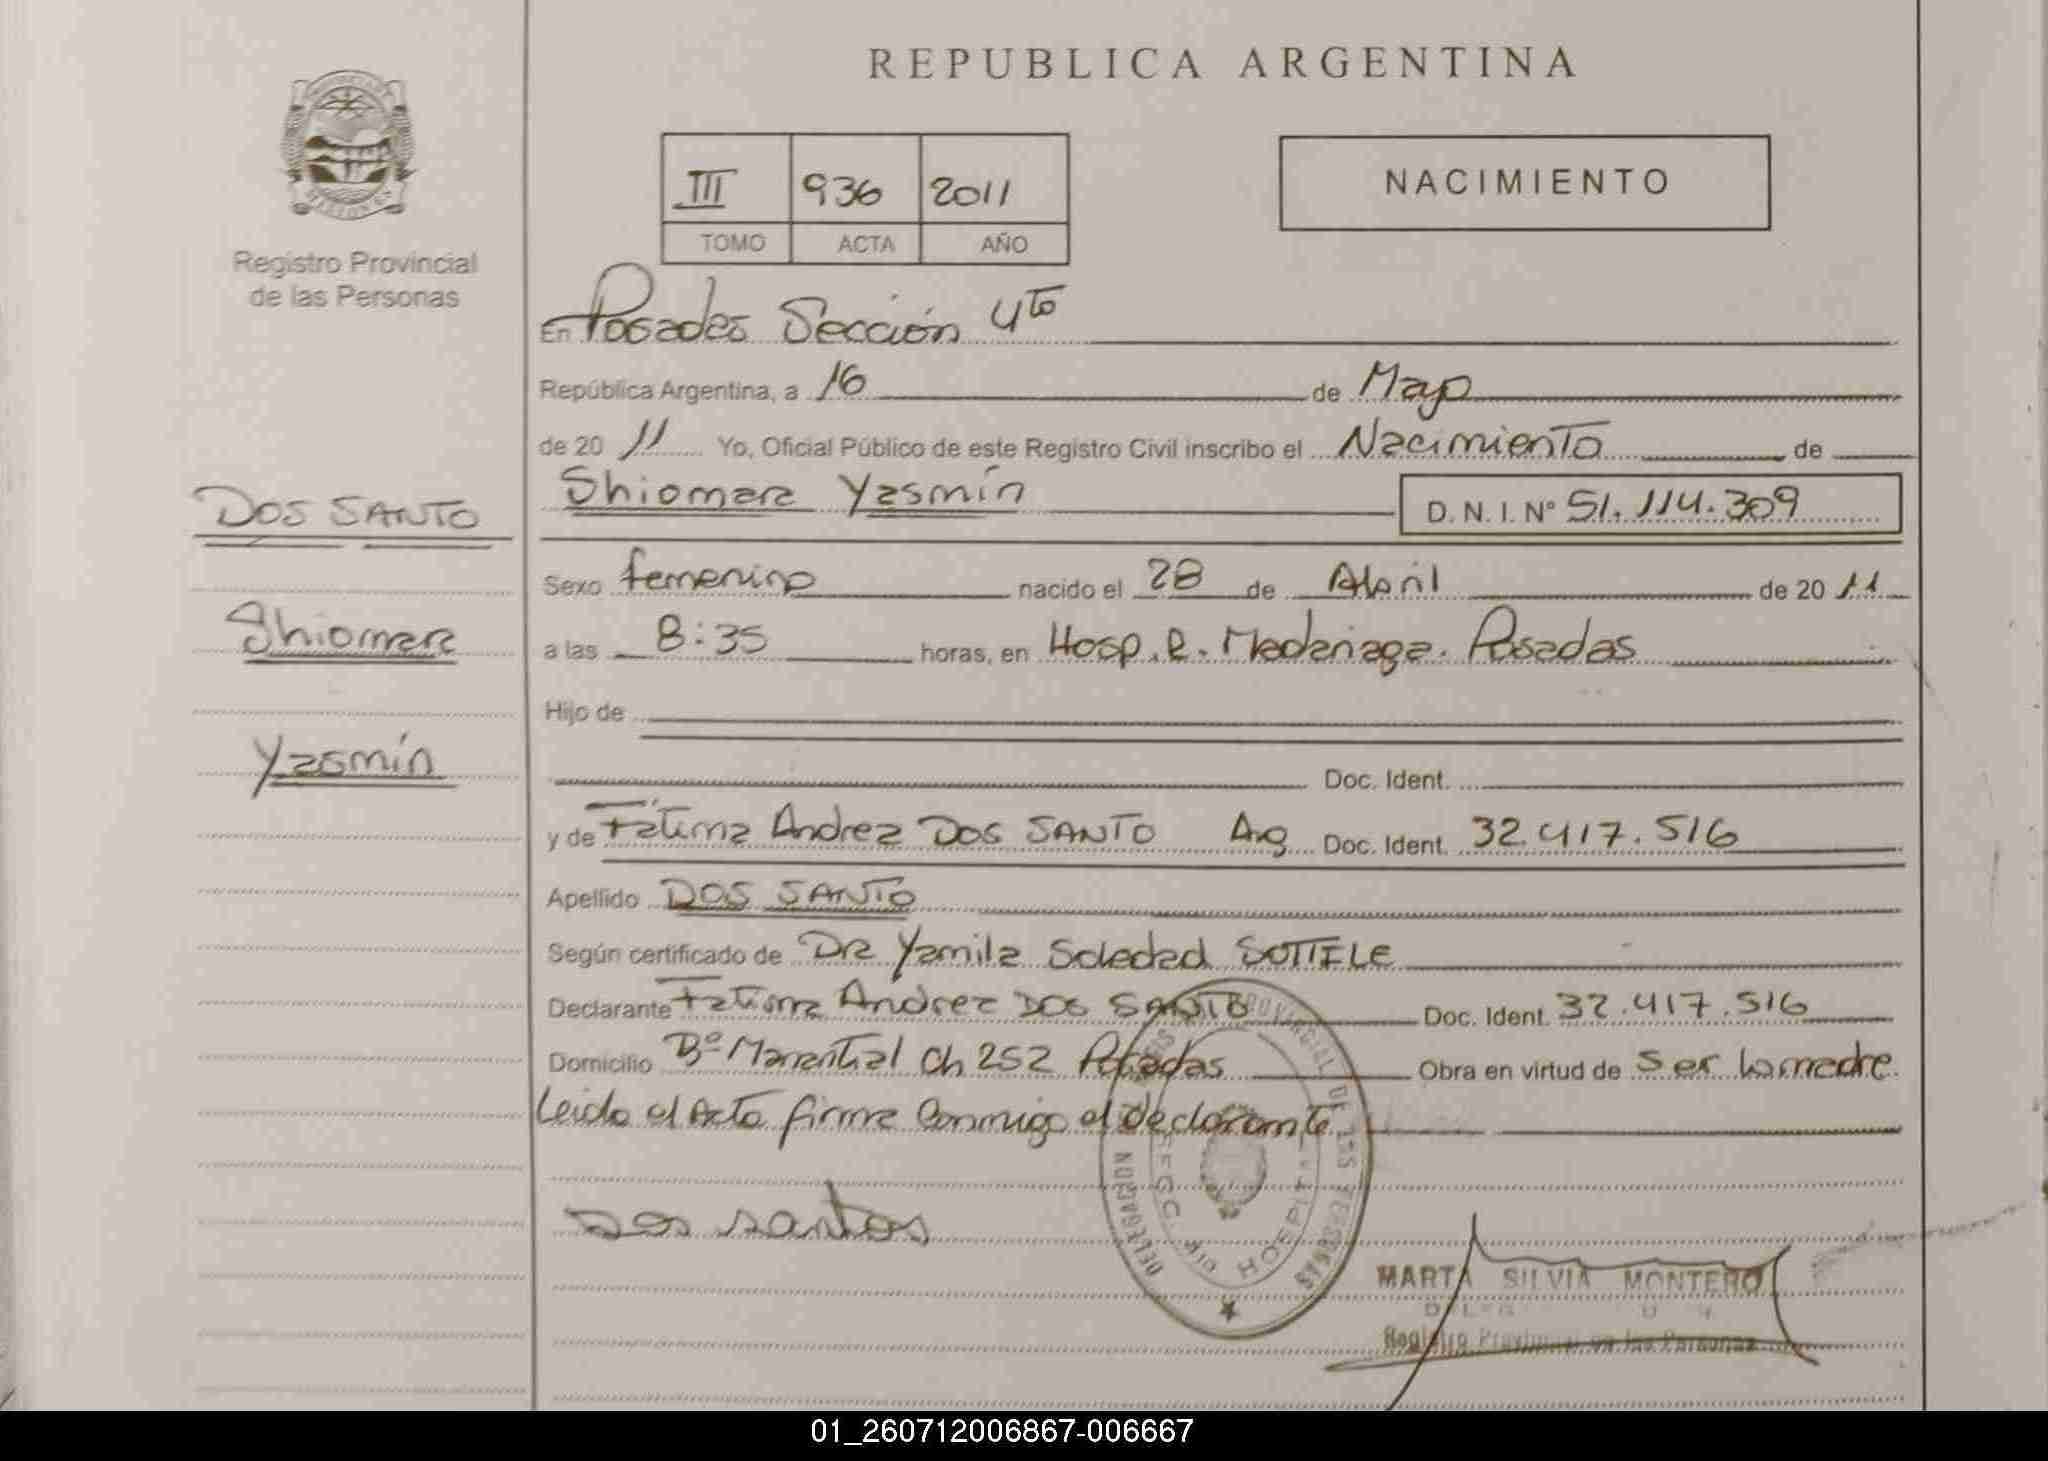 REPUBLICA ARGENTINA
III 936 2011
TOMO ACTA AÑO
NACIMIENTO
Registro Provincial
de las Personas
DOS SANTO
Shiomara
Yasmín
En Posadas Sección 4to
República Argentina, a 16 de Mayo
de 20 11 Yo, Oficial Público de este Registro Civil inscribo el Nacimiento de
Shiomara Yasmín D. N. I. N° 51.114.309
Sexo femenino nacido el 28 de Abril de 20 11
a las 8:35 horas, en Hosp. R. Madariaga. Posadas
Hijo de
Doc. Ident.
y de Fátima Andrea DOS SANTO Arg Doc. Ident. 32.417.516
Apellido DOS SANTO
Según certificado de Dra Yamila Soledad SOTTILE
Declarante Fatima Andrea DOS SANTO Doc. Ident. 32.417.516
Domicilio B° Manantial Ch 252 Posadas Obra en virtud de ser la madre
Leida el Acta firma Conmigo el declarante
Dos santos
PROVINCIAL DE LAS PERSONAS
DELEGACION
HOSPITAL
MARTA SILVIA MONTERO
Registro Provincial de las Personas
01_260712006867-006667